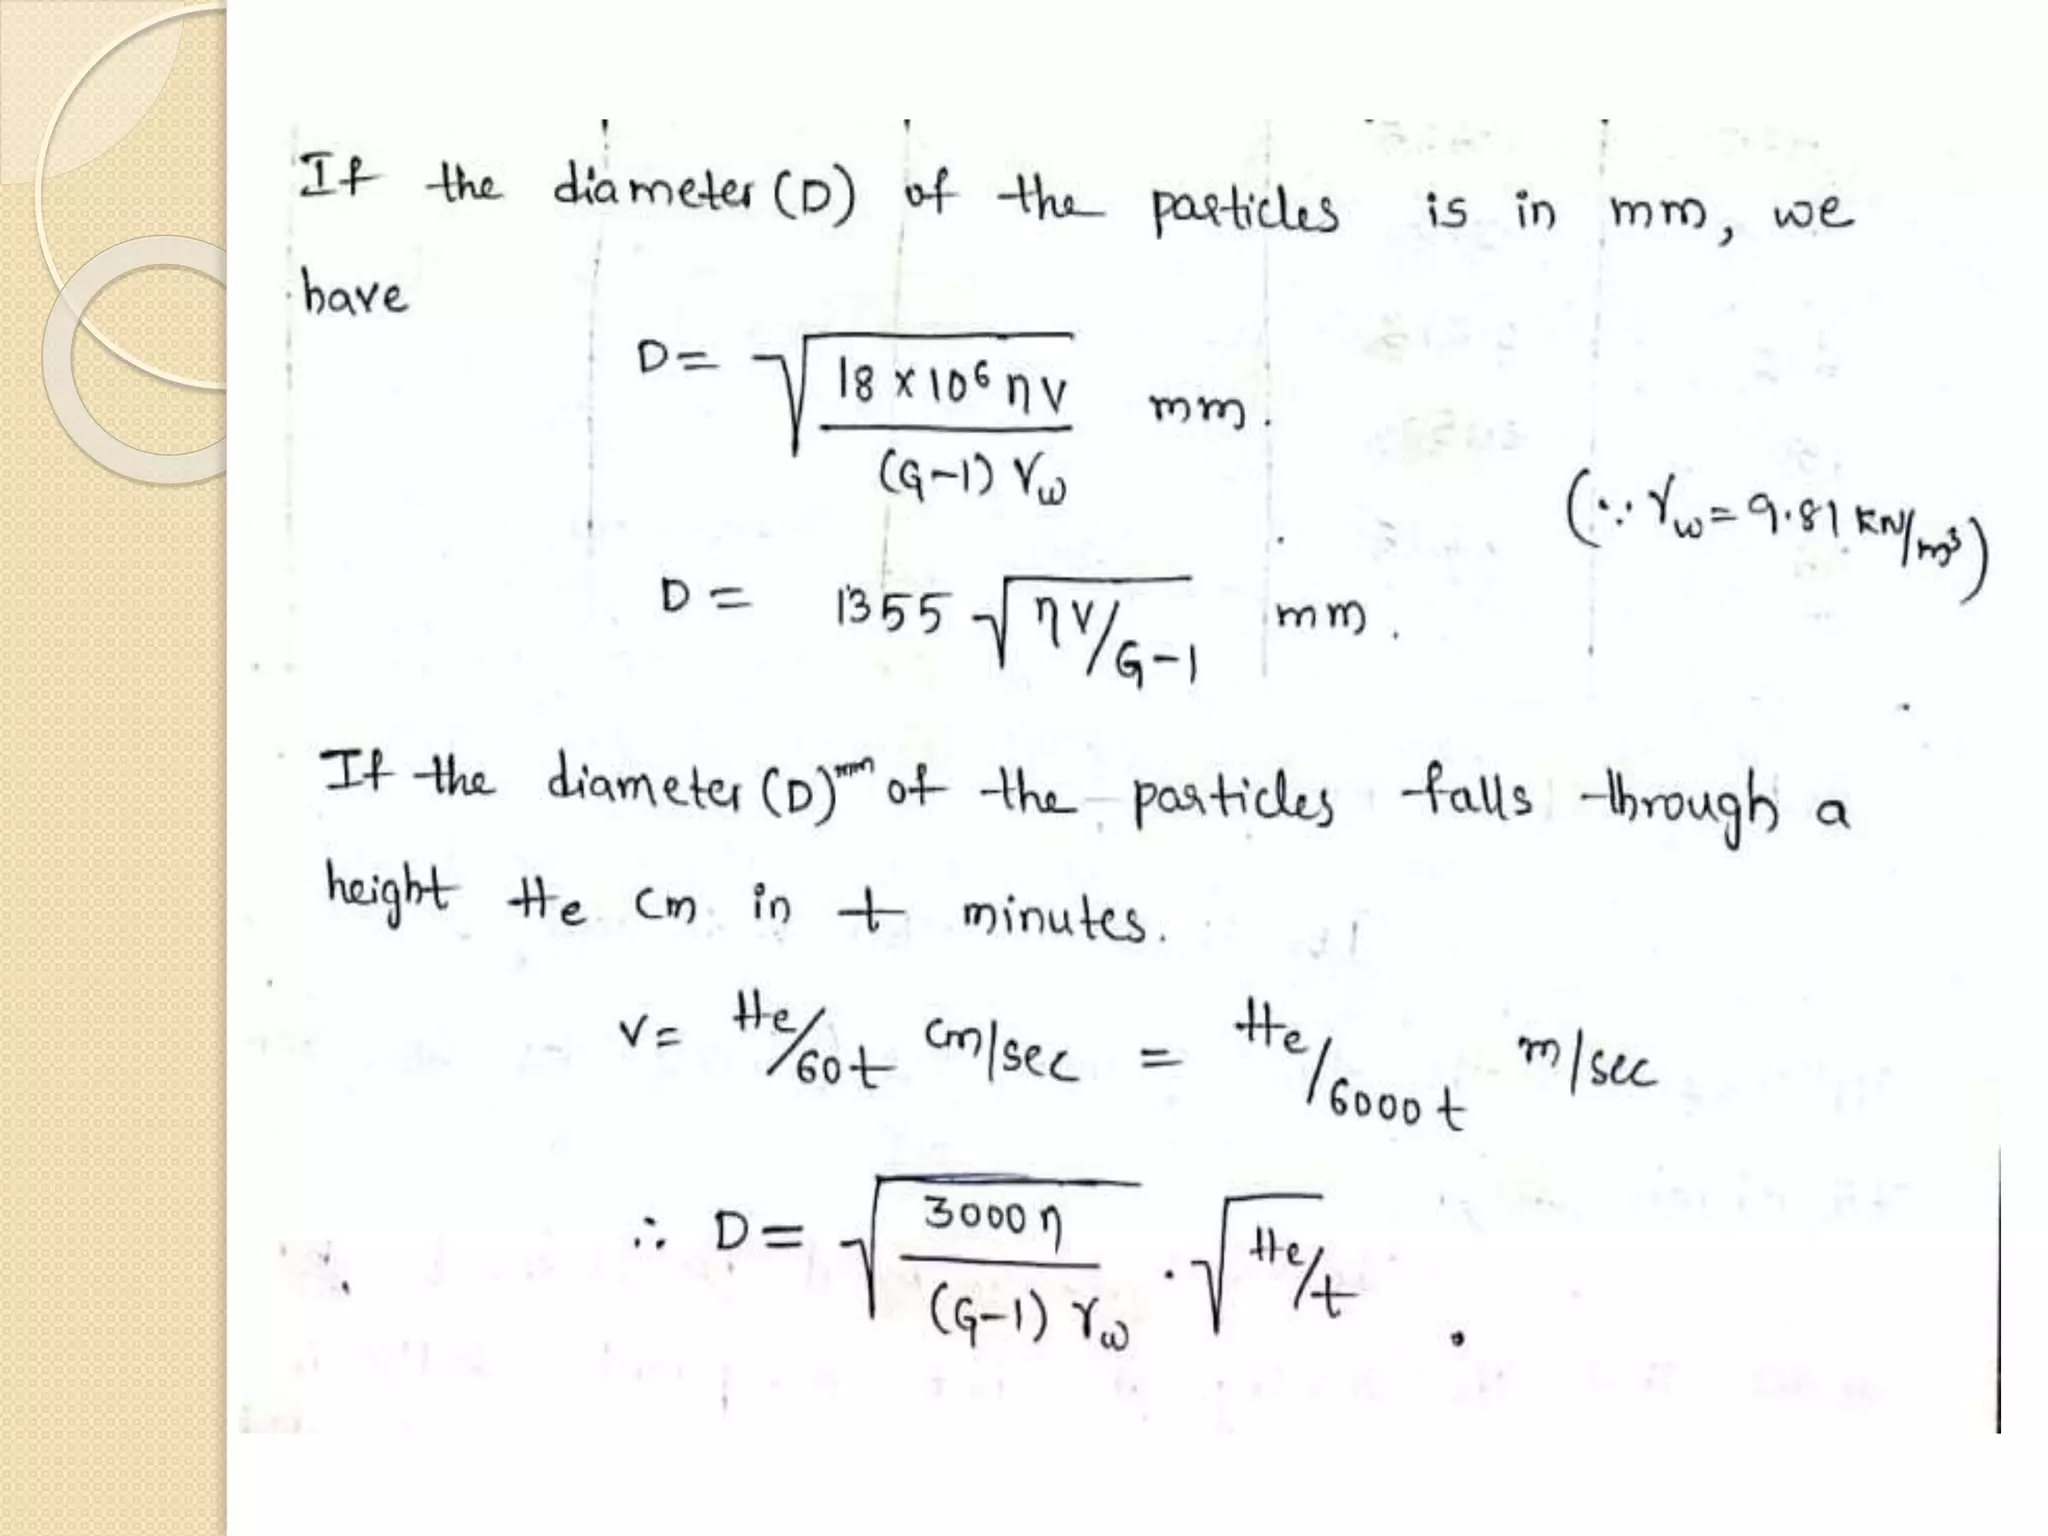 If the diameter (D) of the particles is in mm, we
have
D = √(18 × 10⁶ η V / (G-1) γω) mm.
(∵ γω = 9.81 KN/m³)
D = 1355 √(ηV/G-1) mm.
If the diameter (D)mm of the particles falls through a
height He cm in t minutes.
V = He/60t cm/sec = He/6000t m/sec
∴ D = √(3000 η / (G-1) γω) . √(He/t) .